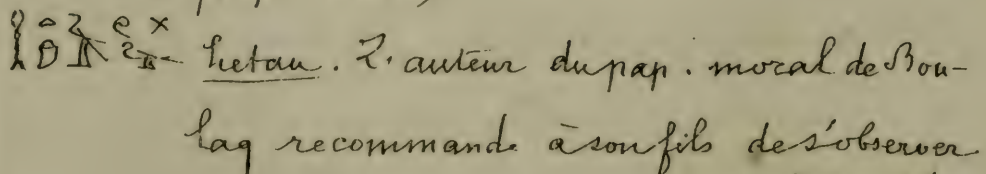 hetau. L'auteur du pap. moral de Bou-
laq recommande à son fils de s'observer